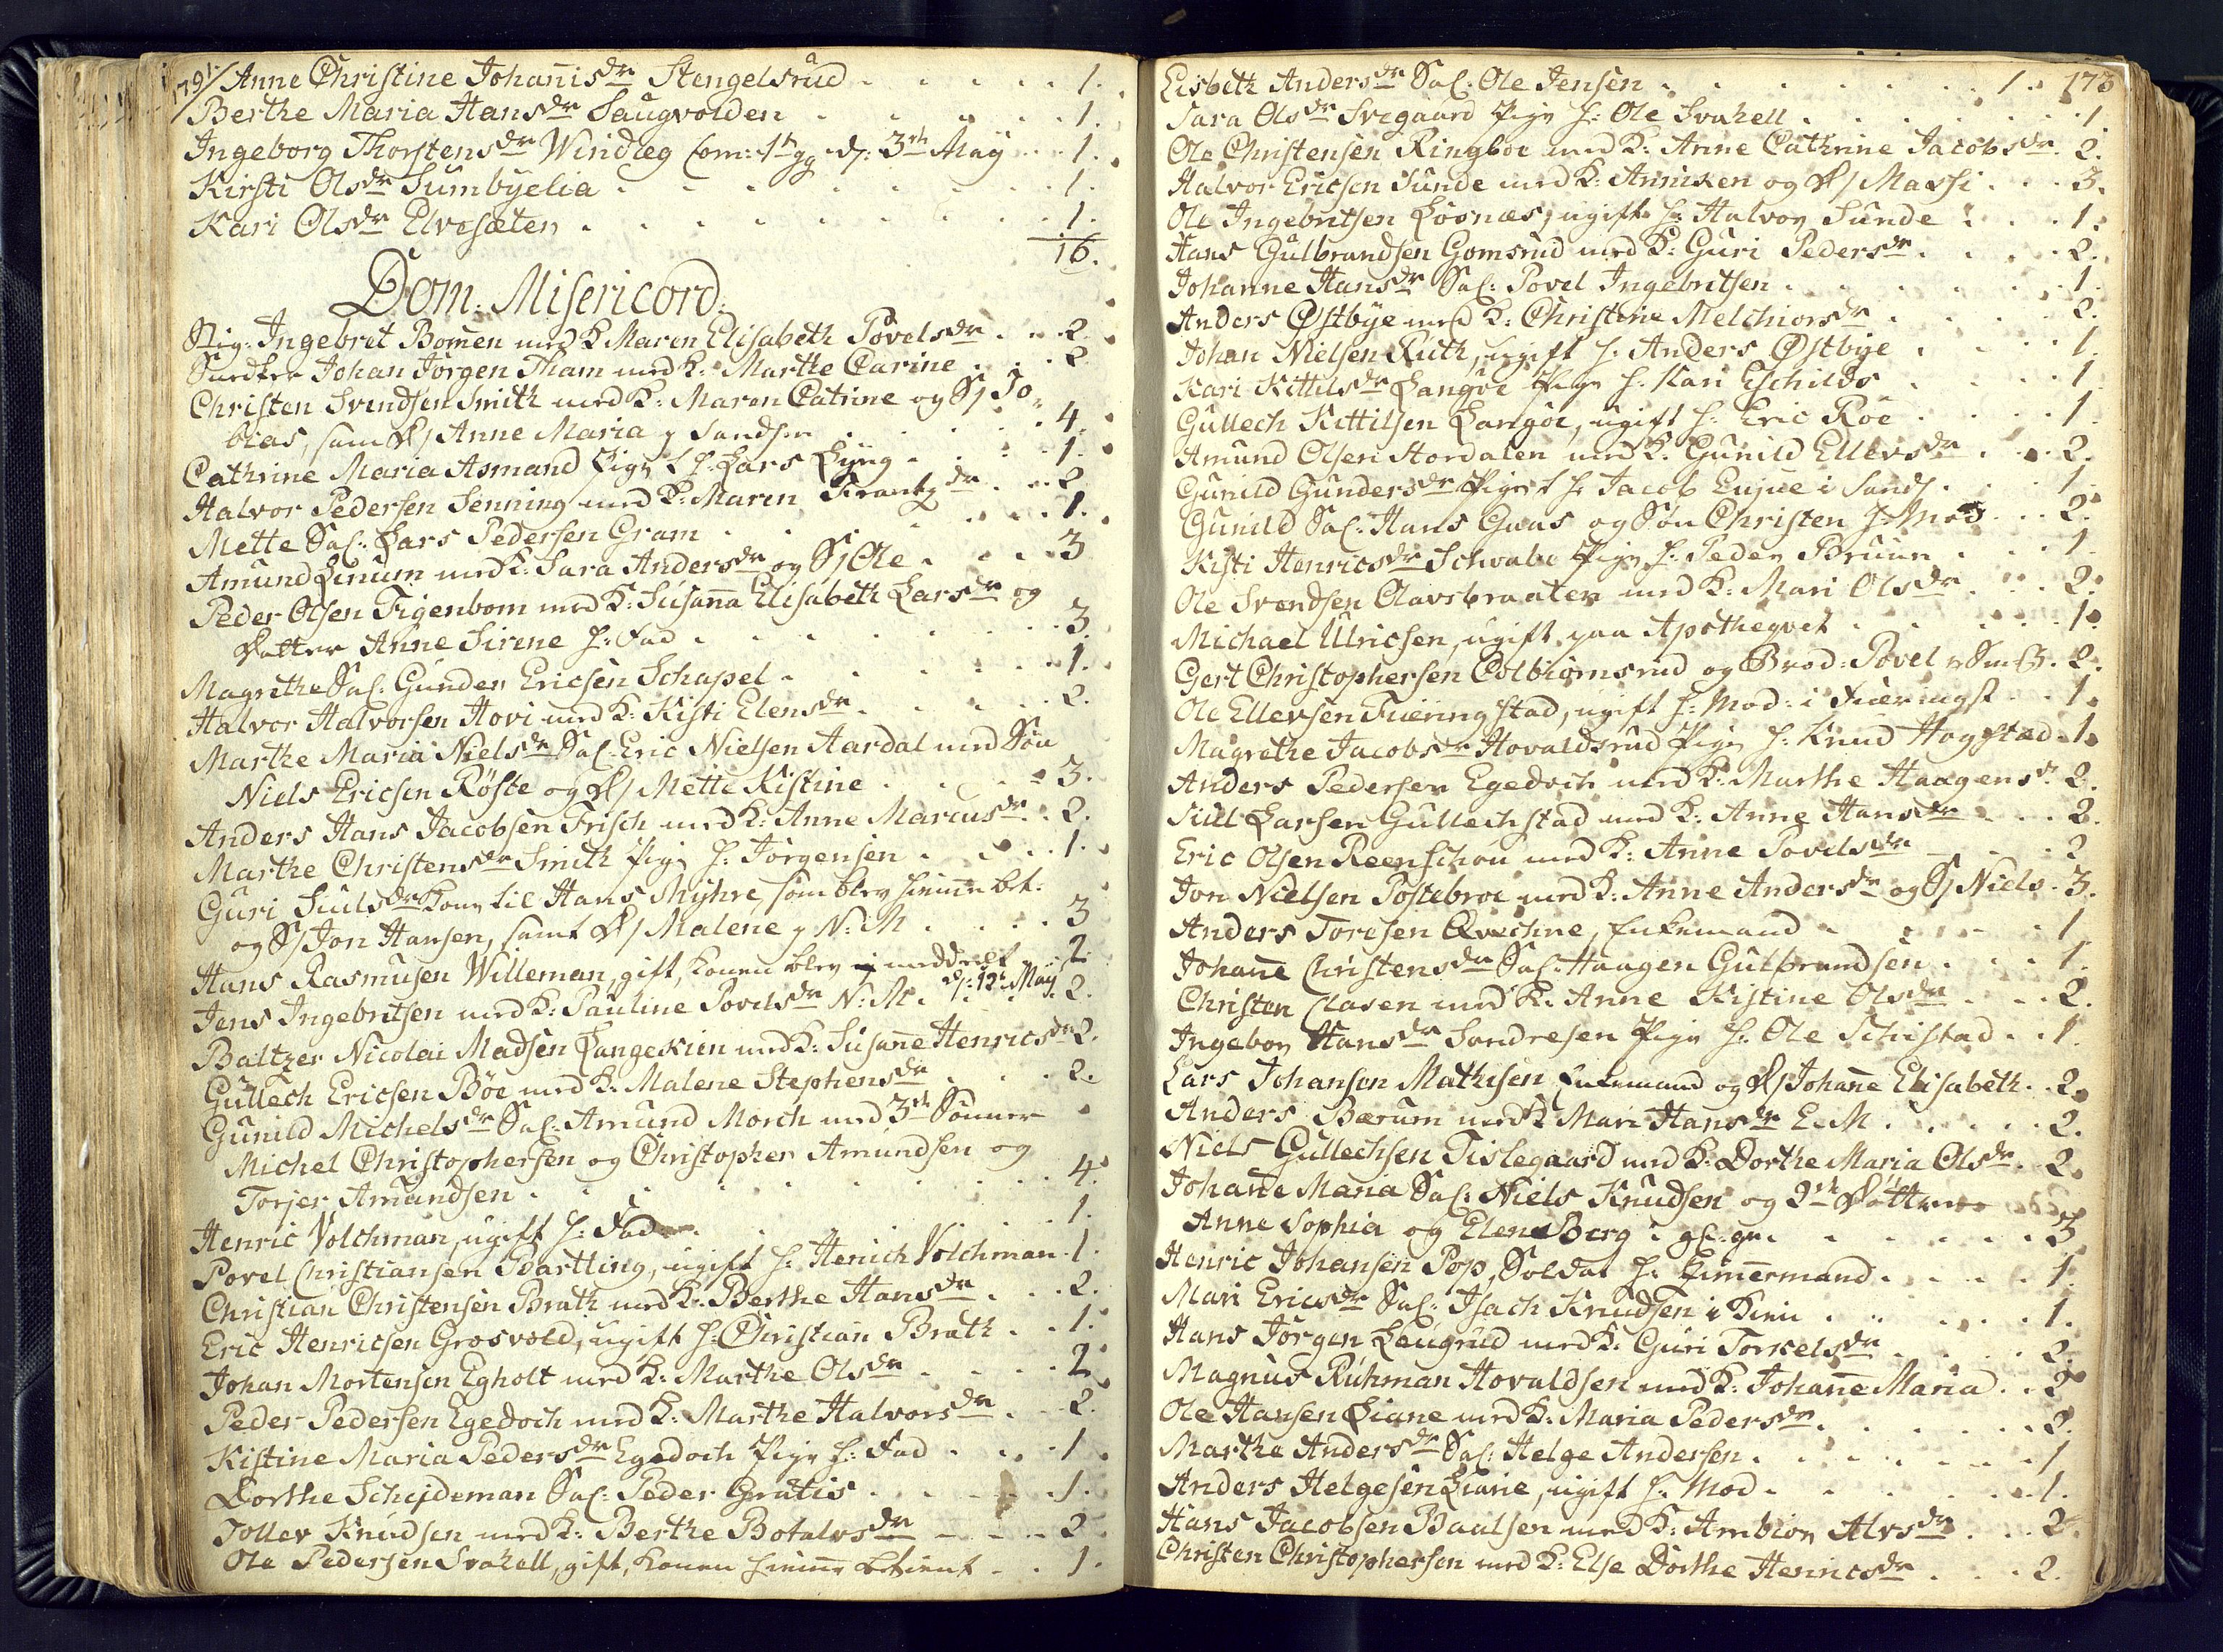 1791. Anne Christine Johan̅isdr Stengelsrud . . . . . 1.
Berthe Maria Hansdr Saugvolden . . . . . 1.
Ingeborg Thorstensdr Windleg Com: 1te gg d: 3de Maÿ . . 1.
Kirsti Olsdr Sumbÿelia . . . . . . 1.
Kari Olsdr Elvesæter . . . . . . 1.
16.
Dom: Misericord:
Sig: Ingebret Bomen med K Maren Elisabeth Povelsdr . . 2.
Snedker Johan Jørgen Tham med K: Marthe Carine . . . 2
Christen Svendsen Smith med K: Maren Catrine og S/ To
bias, samt D/ Anne Maria p Sandsv . . . . 4.
Cathrine Maria Asmand Pige h: Lars Lÿng . . . . 1.
Halvor Pedersen Senning med K: Maren Frantzdr . . 2
Mette Sal: Lars Pedersen Gram . . . . . 1.
Amund Linum med K: Sara Andersdr og S/ Ole . . . 3
Peder Olsen Figenbom med K: Susan̅a Elisabeth Larsdr og
Datter Anne Sirene h: Fad . . . . . . 3
Magrethe Sal: Gunder Ericsen Schapel . . . . 1.
Halvor Halvorsen Hovi med K: Kisti Elensdr . . . . 2.
Marthe Maria Nielsdr Sal: Eric Nielsen Aardal med Søn
Niels Ericsen Røste og D/ Mette Kistine . . . . 3.
Anders Hans Jacobsen Frisch med K: Anne Marcusdr . . 2.
Marthe Christensdr Smith Pige h: Jørgensen . . . . 1.
Guri Siulsdr Kone til Hans Mÿhre, som blev hiem̅e bet:
og S/ Jon Hansen, samt D/ Malene p N: M . . . . 3
Hans Rasmusen Willeman, gift, konen blev ei meddeelt . . 1
Jens Ingebritsen med K: Pauline Povelsdr N: M. d: 12te Maÿ. 2.
Baltzer Nicolai Madsen Langeskien med K: Susan̅e Henricsdr 2.
Gullech Ericsen Bøe med K: Malene Stephensdr . . . 2.
Gunild Michelsdr Sal: Amund Morch med 3de Sønner
Michel Christophersen og Christopher Amundsen og
Torjer Amundsen . . . . . . . 4.
Henric Volchman, ugift h: Fad . . . . . 1.
Povel Christiansen Bartling, ugift h: Henich Volchman . 1.
Christian Christensen Brath med K: Berthe Hansdr . . . 2.
Eric Henricsen Grosvold, ugift h: Christian Brath . . 1.
Johan Mortensen Egholt med K: Marthe Olsdr . . . . 2
Peder Pedersen Egedoch med K: Marthe Halvorsdr . . . 2.
Kistine Maria Pedersdr Egedoch Pige h: Fad . . . 1.
Dorthe Schejdeman Sal: Peder Gratis . . . . . 1.
Tollev Knudsen med K: Berthe Botalvsdr . . . 2.
Ole Pedersen Svahell, gift, konen hiem̅e betient . . 1.
Lisbeth Andersdr Sal: Ole Jensen . . . . . . 1. 173
Sara Olsdr Svegaard Pige h: Ole Svahell . . . . . 1.
Ole Christensen Ringboe med K: Anne Cathrine Jacobsdr . 2.
Halvor Ericsen Sunde med K: Anniken og D/ Massi . . . 3.
Ole Ingebritsen Løsnæs, ugift h: Halvor Sunde . . . 1.
Hans Gulbrandsen Gomsrud med K: Guri Pedersdr . . . 2.
Johanne Hansdr Sal: Povel Ingebritsen . . . . . 1.
Anders Østbÿe med K: Christine Melchiorsdr . . . . 2.
Johan Nielsen Kuth, ugift h: Anders Østbÿe . . . . 1.
Kari Kittilsdr Langøe Pige h: Kari Eschilds . . . . 1
Gullech Kittilsen Langøe, ugift h: Eric Røe . . . . 1
Amund Olsen Stordalen med K: Gunild Ellevsdr . . . 2.
Gunild Gundersdr Pige h: Jacob Eujue i Sands . . . 1.
Gunild Sal: Hans Gaas og Søn Christen h: Mod . . 2.
Kisti Henricsdr Schwabe Pige h: Peder Bruun . . . . 1.
Ole Svendsen Olavsbraaten med K: Mari Olsdr . . . 2.
Michael Ulricsen, ugift paa Apotheqvet . . . . . 1.
Gert Christophersen Colbiørnsrud og Brod: Povel . 2.
Ole Ellevsen Fueringstad, ugift h: Mod: i Fueringst . . 1.
Magrethe Jacobsdr Hovaldsrud Pige h: Knud Hogstad . 1.
Anders Pedersen Egedoch med K: Marthe Haagensdr 2.
Siul Larsen Gullechstad med K: Anne Hansdr . . . 2.
Eric Olsen Reenschou med K: Anne Povelsdr . . . 2
Jon Nielsen Postebroe med K: Anne Andersdr og S/ Niels . 3.
Anders Toresen Qvechne, Enkemand . . . . . 1
Johan̅e Christensdr Sal: Haagen Gulbrandsen . . . 1.
Christen Clasen med K: Anne Kistine Olsdr . . . 2.
Ingebor Hansdr Sondresen Pige h: Ole Schistad . . 1.
Lars Johansen Mathisen Enkemand og D/ Johan̅e Elisabeth . . 2.
Anders Bærum med K Mari Hansdr E: M . . . . . 2.
Niels Gullechsen Tislegaard med K: Dorthe Maria Olsdr . 2.
Johan̅e Maria Sal: Niels Knudsen og 2de Døttre
Anne Sophia og Elene Berg i gl: gr . . . . . . 3
Henric Johansen Pop, Soldat h: Zim̅ermand . . . . 1.
Mari Ericsdr Sal: Isach Knudsen i . . . . . 1.
Hans Jørgen Laugrud med K: Guri Torkelsdr . . . . 2.
Magnus Ruhman Hovaldsen med K: Johan̅e Maria . . 2
Ole Hansen Liane med K: Maria Pedersdr . . . . . . 2.
Marthe Andersdr Sal: Helge Andersen . . . . . . 1
Anders Helgesen Liane, ugift h: Mod . . . . . . 1.
Hans Jacobsen Baalsen med K: Ambior Alvsdr . . . 2.
Christen Christophersen med K: Else Dorthe Henricsdr . . . 2.